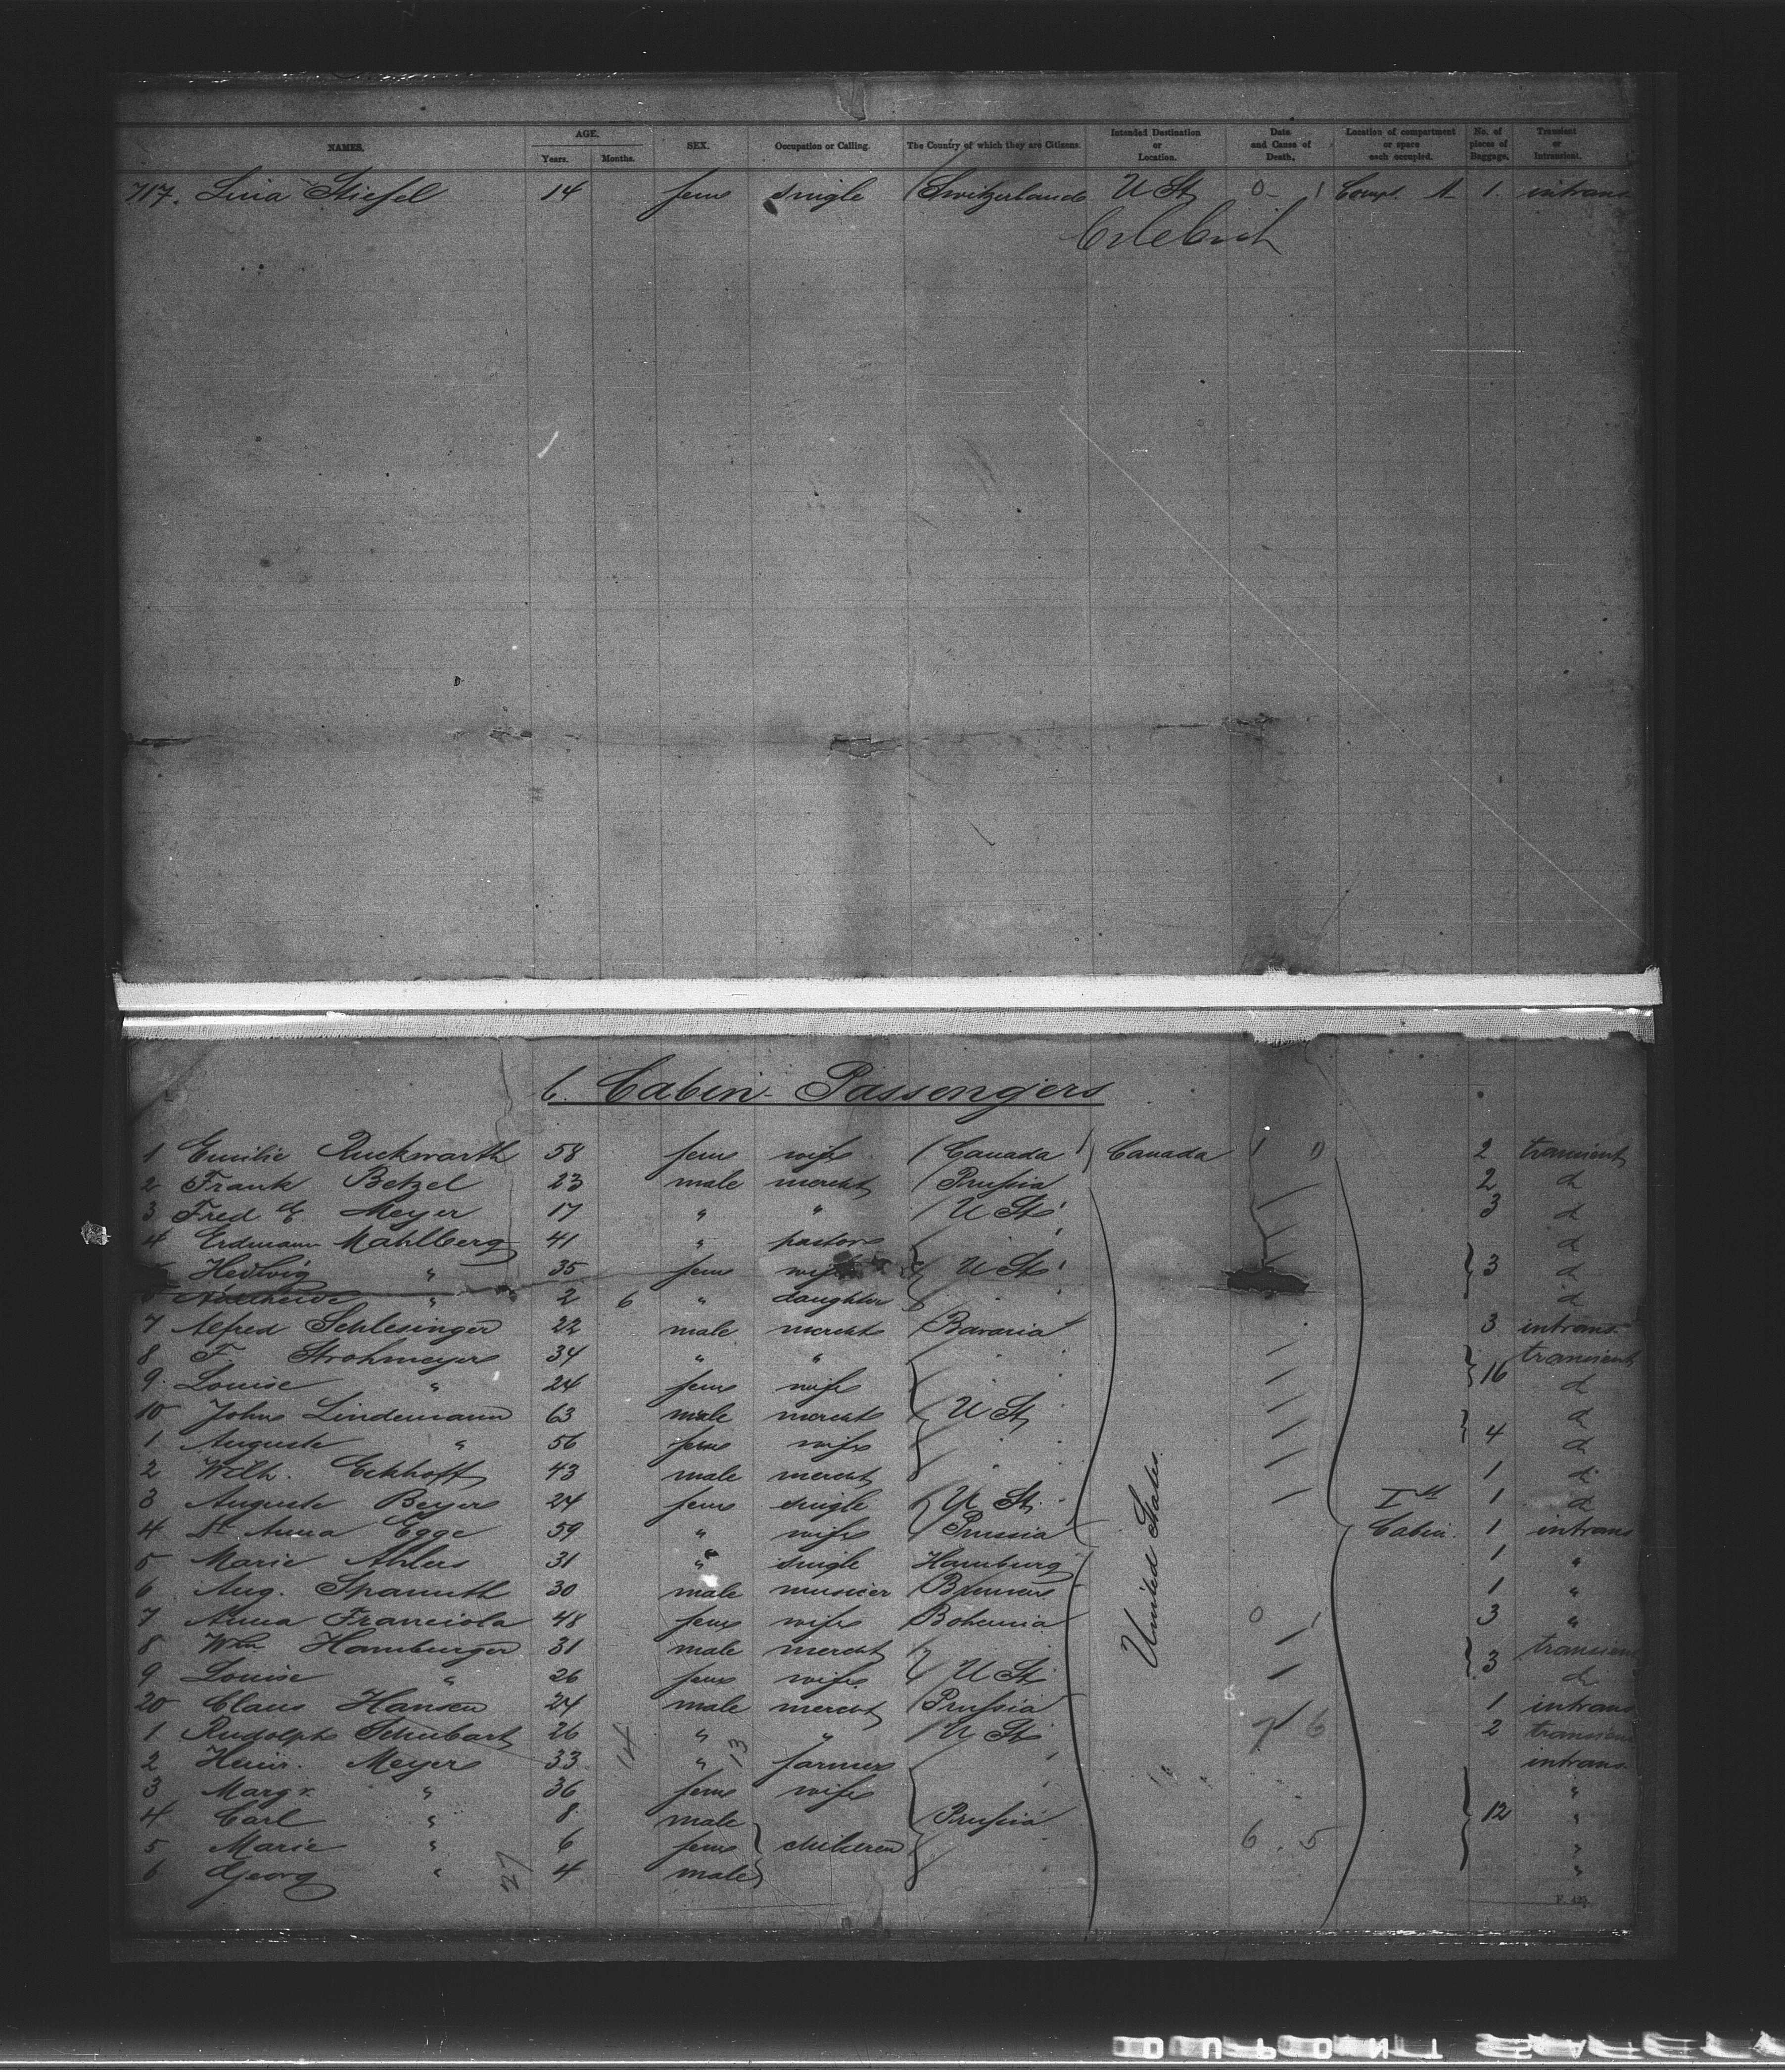 NAMES. AGE. Years. Months. SEX. Occupation or Calling. The Country of which they are Citizens. Intended Destination or Location. Date and Cause of Death. Location of compartment or space each occupied. No. of pieces of Baggage. Transient or Intransient.
717. Lina Stiefel 14 fem single Switzerland U St 0 1 Compt. 1. intrans
b. Cabin Passengers
1 Emilie Ruckwarth 58 fem wife Canada Canada 1 0 2 transient
2 Frank Betzel 23 male mercht Prussia 2 d
3 Fred E. Meyer 17 " " U St 3 d
4 Erdmann Mahlberg 41 " pastor d
Hedwig " 35 fem wife U St 3 d
" 2 6 " daughter d
7 Alfred Schlesinger 22 male mercht Bavaria 3 intrans
8 F Strohmeyer 34 " " transient
9. Louise " 24 fem wife 16 d
10 John Lindemann 63 male mercht U St d
1 Auguste " 56 fem wife 4 d
2 Wilh. Eckhoff 43 male mercht 1 d
3 Auguste Beyer 24 fem single U St. Ist 1 d
4 Anna Egge 59 " wife Prussia Cabin. 1 intrans
5 Marie Ahlers 31 " single Hamburg 1 "
6 Aug. Spanuth 30 male musicer Bremen 1 "
7 Anna Franciola 48 fem wife Bohemia 0 1 3 "
8 Wm Hamburger 31 male mercht transient
9 Louise " 26 fem wife U St 3 d
20 Claus Hansen 24 male mercht Prussia 1 intrans
1 Rudolph Schubart 26 " " U St 6 2 transient
2 Heinr. Meyer 33 14 " 13 farmer intrans
3 Margr. " 36 fem wife "
4 Carl " 8 male Prussia 12 "
5 Marie " 6 fem children 6 . 5 "
6 Georg " 27 4 male "
United States.